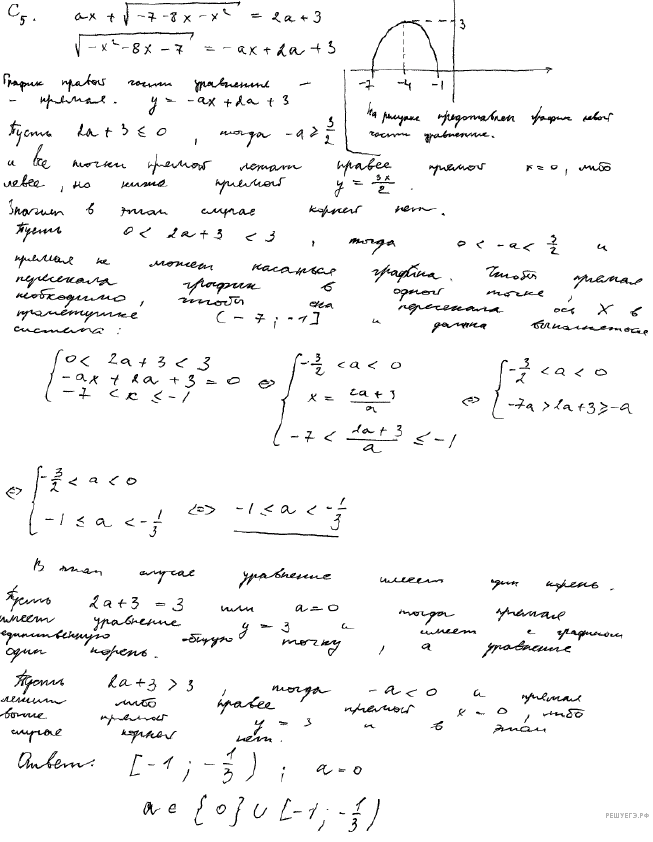 C5. ax + √(-7-8x-x²) = 2a+3
√(-x²-8x-7) = -ax+2a+3
3
-7 -4 -1
График правой части уравнения -
- прямая. y = -ax+2a+3
На рисунке представлен график левой
части уравнения.
Пусть 2a+3 ≤ 0, тогда -a ≥ 3/2
и все точки прямой лежат правее прямой x=0, либо
левее, но ниже прямой y = 3x/2.
Значит в этом случае корней нет.
Пусть 0 < 2a+3 < 3, тогда 0 < -a < 3/2 и
прямая не может касаться графика. Чтобы прямая
пересекала график в одной точке,
необходимо, чтобы она пересекала ось X в
промежутке (-7; -1] и должна выполняться
система:
{ 0 < 2a+3 < 3; -ax+2a+3 = 0; -7 < x ≤ -1 ⇔ { -3/2 < a < 0; x = (2a+3)/a; -7 < (2a+3)/a ≤ -1 ⇔ { -3/2 < a < 0; -7a > 2a+3 ≥ -a
⇔ { -3/2 < a < 0; -1 ≤ a < -1/3 ⇔ -1 ≤ a < -1/3
В этом случае уравнение имеет один корень.
Пусть 2a+3 = 3 или a=0 тогда прямая
имеет уравнение y = 3 и имеет с графиком
единственную общую точку, а уравнение
один корень.
Пусть 2a+3 > 3, тогда -a < 0 и прямая
лежит либо правее прямой x = 0, либо
выше прямой y = 3 и в этом
случае корней нет.
Ответ: [-1; -1/3); a=0
a ∈ {0} ∪ [-1; -1/3)
РЕШУЕГЭ.РФ